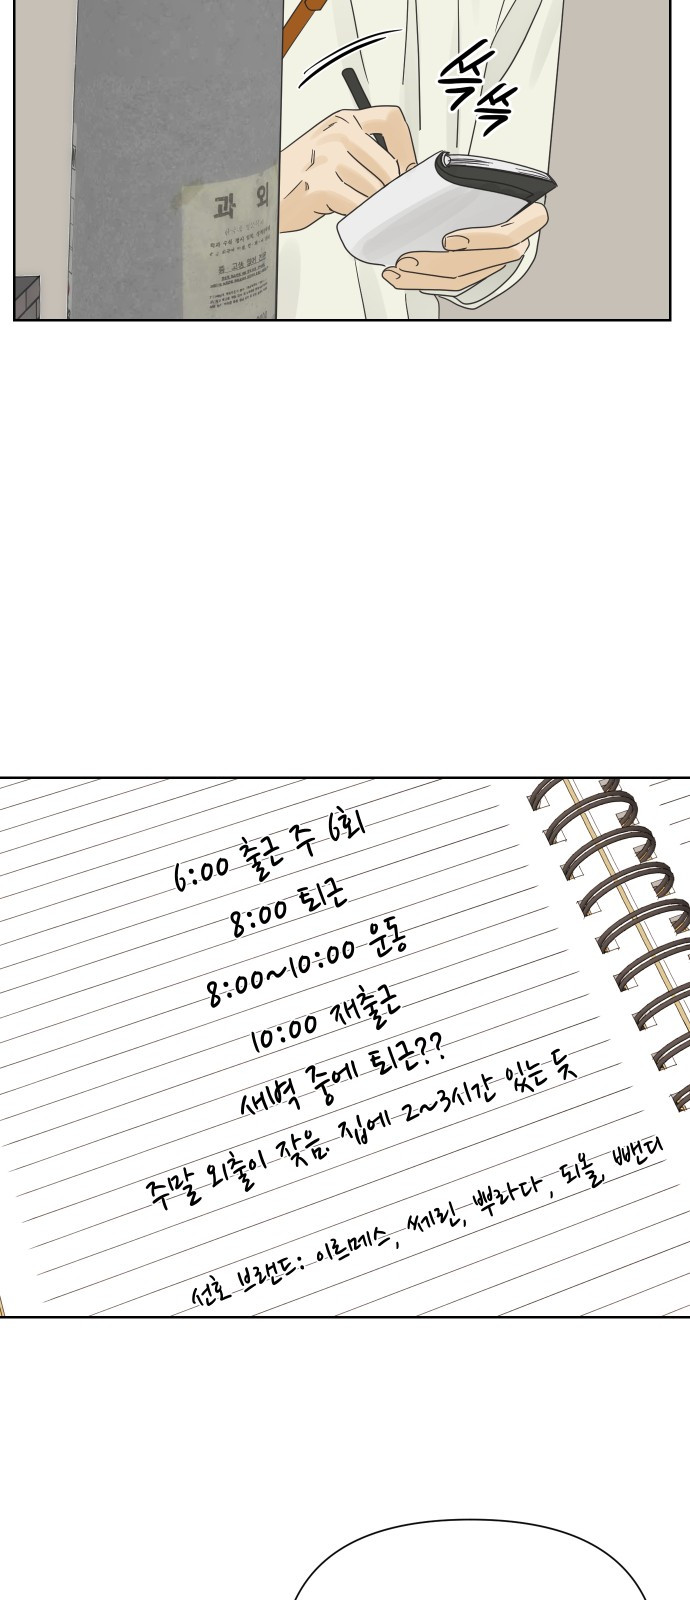 쓱
쓱
과 외
중 고생 영어 전문
6:00 출근 주 6회
8:00 퇴근
8:00~10:00 운동
10:00 재출근
새벽 중에 퇴근??
주말 외출이 잦음. 집에 2~3시간 있는 듯
선호 브랜드: 이르메스, 쎄린, 뿌라다, 되올, 뺀디